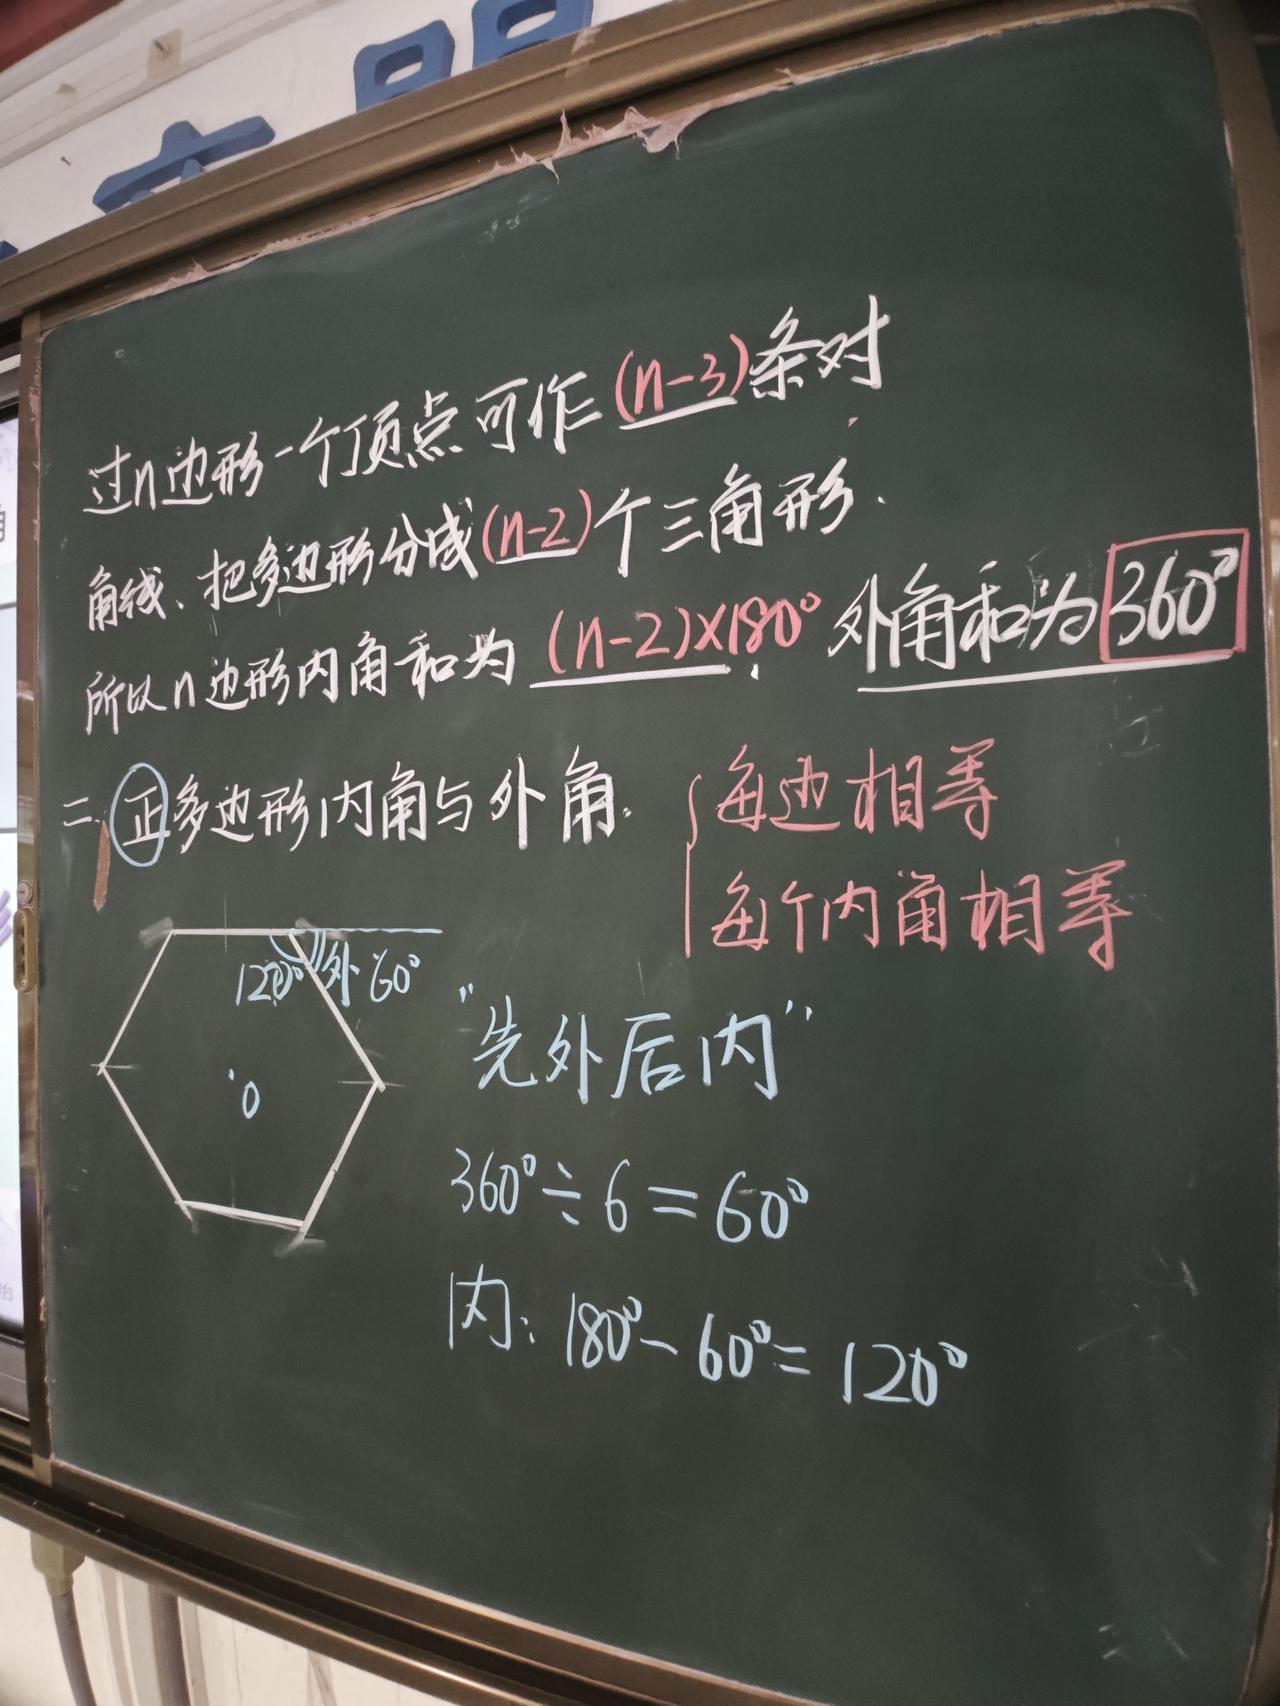 过n边形一个顶点可作(n-3)条对
角线、把多边形分成(n-2)个三角形.
所以n边形内角和为(n-2)×180° 外角和为360°
二.正多边形内角与外角. {每边相等
每个内角相等
120° 外 60°
O
"先外后内"
360°÷6=60°
内:180°-60°=120°